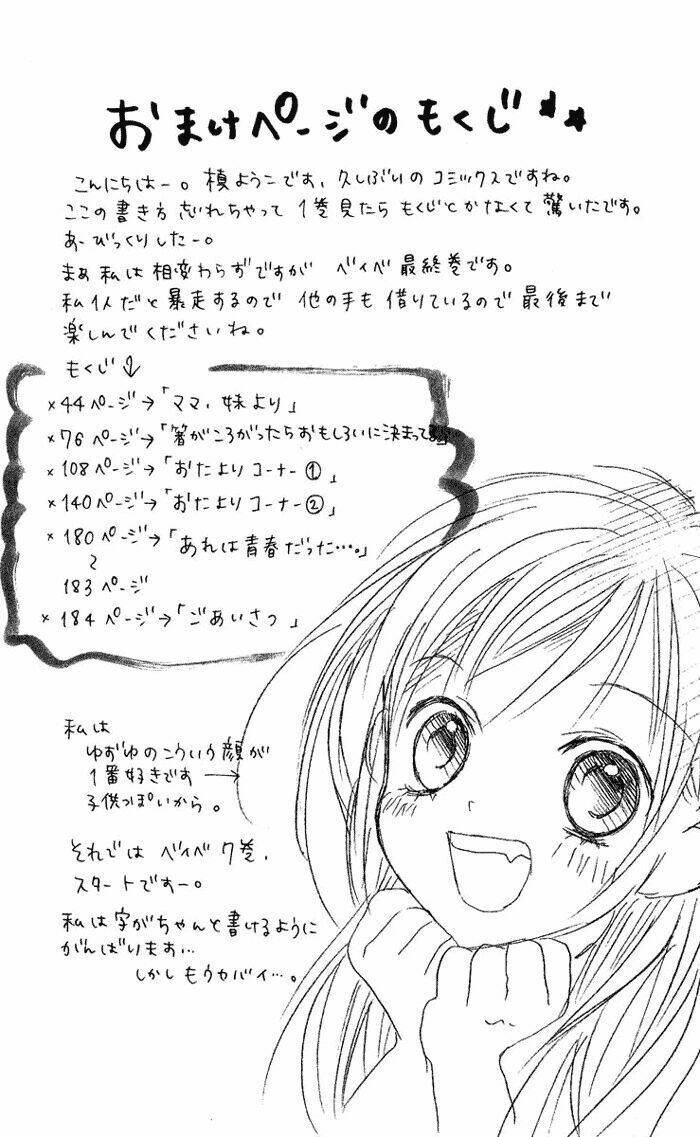 おまけページのもくじ★★
こんにちはー。槙ようこです、久しぶりのコミックスですね。
ここの書き方忘れちゃって 1巻見たら もくじとかなくて驚いたです。
あーびっくりしたー。
まぁ私は相変わらずですが ベイベ最終巻です。
私1人だと暴走するので 他の手も借りているので最後まで
楽しんでくださいね。
もくじ↓
×44ページ→「ママ、妹より」
×76ページ→「箸がころがったらおもしろいに決まってる」
×108ページ→「おたよりコーナー①」
×140ページ→「おたよりコーナー②」
×180ページ→「あれは青春だった…。」
〜
183ページ
×184ページ→「ごあいさつ」
私は
ゆずゆのこういう顔が
1番好きです→
子供っぽいから。
それでは ベイベ7巻、
スタートですー。
私は字がちゃんと書けるように
がんばります…
しかしもうヤバイ…。